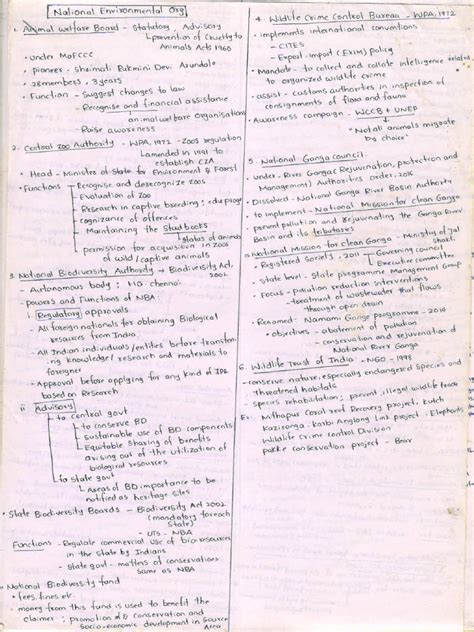 National Environmental Org
1. Animal welfare Board - Statutory Advisory
Prevention of Cruelty to
Animals Acts 1960
• under MoFCCC
• pioneer - Shrimati Rukmini Devi Arundale
• 28 members, 3 years
• Function - Suggest changes to law
- Recognise and financial assistance
an animal welfare organisations
- Raise awareness
2. Central Zoo Authority - WPA, 1972 - Zoos regulation
amended in 1991 to
establish CZA
• Head - Minister of State for Environment & Forest
• Functions - Recognise and derecognize zoos
- Evaluation of Zoo
- Research in captive breeding: edu progs
- cognizance of offences
- Maintaining the Stud books
status of animals
- permission for acquisition in zoos
of wild/captive animals
3. National Biodiversity Authority → Biodiversity Act,
2002
- Autonomous body : HQ chennai
- powers and Functions of NBA:
i. Regulatory approvals
- All foreign nationals for obtaining Biological
resources from India
- All Indian individuals/entities before transferr-
ing knowledge/research and materials to
foreigner
- Approval before applying for any kind of IPR
based on Research
ii Advisory
→ to central govt
→ to conserve BD
→ sustainable use of BD components
→ Equitable sharing of benefits
arising out of the utilization of
biological resources
→ to state govt
↳ Areas of BD importance to be
notified as heritage sites
• State Biodiversity Boards - Biodiversity Act 2002
(mandatory for each
State)
- UTs - NBA
Functions - Regulate commercial use of bio resources
in the state by Indians
- State govt - matters of conservations
same as NBA
National Biodiversity fund
• fees, fines etc.
• money from this fund is used to benefit the
claimer ; promotion of conservation and
socio-economic development in Source
Area
4. Wildlife Crime Control Bureau - WPA, 1972
• implements international conventions
- CITES
- Export-import (Exim) policy
• Mandate - to collect and collate intelligence related
to organized wildlife crime
• assist - customs authorities in inspection of
consignments of flora and fauna
• Awareness campaign - WCCB + UNEP
"Not all animals migrate
by choice"
5. National Ganga council
• under - River Ganga (Rejuvenation, protection and
Management) Authorities order, 2016
• Dissolved - National Ganga River Basin Authority
• to implement - National Mission for clean Ganga
• prevent pollution and rejuvenating the Ganga River
Basin and its tributaries
National Mission for clean Ganga - Ministry of Jal
Shakti
• Registered Society, 2011 - Governing council
Executive committee
• State level - State programme Management Group
• Focus - pollution reduction interventions
→ treatment of wastewater that flows
through open drain
• Renamed - Namami Ganga programme - 2010
• objectives - abatement of pollution
- conservation and rejuvenation of
National River Ganga
6. Wildlife Trust of India - NGO - 1998
- conserve nature, especially endangered species and
threatened habitats
- species rehabilitation; prevent illegal wildlife trade
Ex: Mithapur Coral reef Recovery project, kutch
Kaziranga - karbi Anglong link project - Elephants
Wildlife Crime control Division
pakke conservation project - Bear